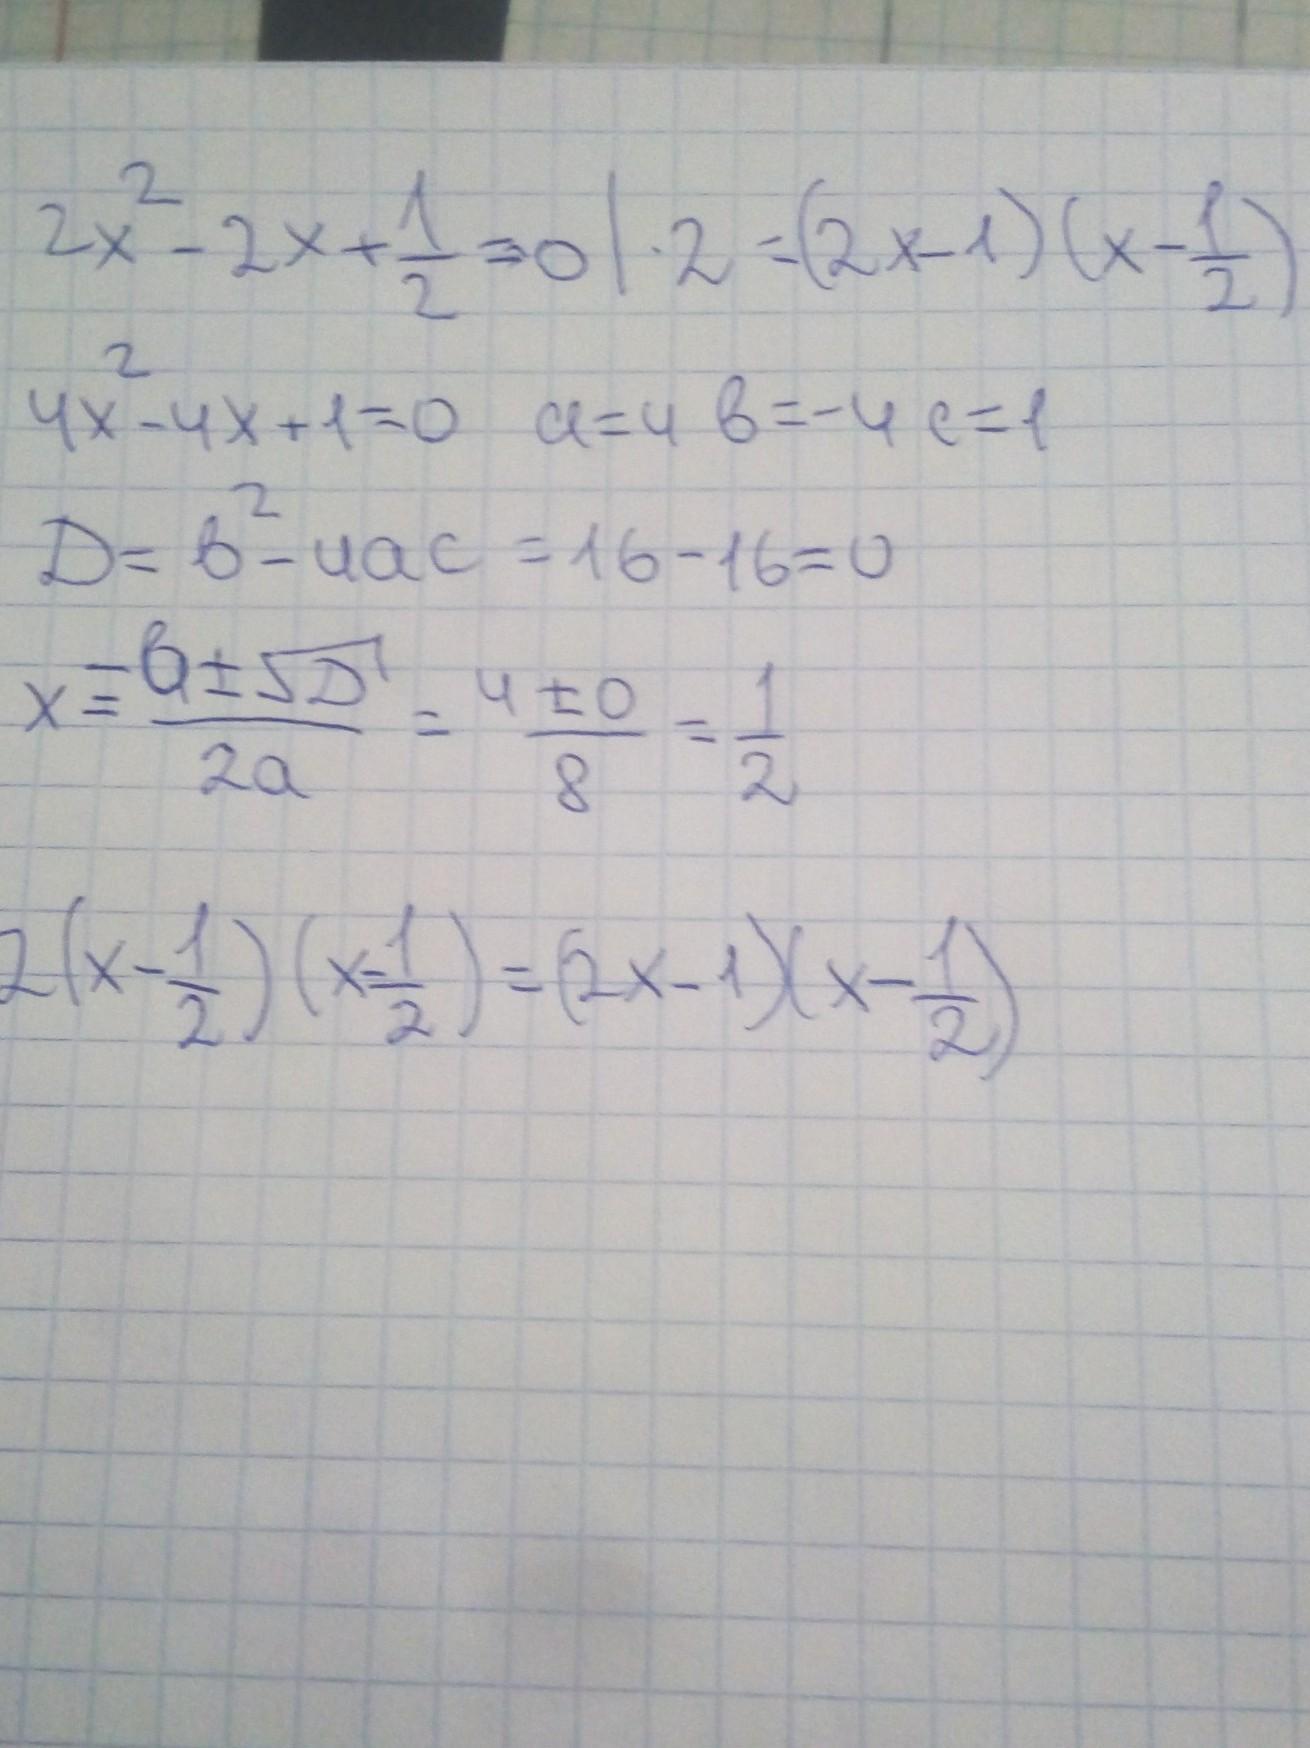 2x² - 2x + 1/2 = 0 | · 2 = (2x - 1)(x - 1/2)
4x² - 4x + 1 = 0 a = 4 в = -4 c = 1
D = в² - 4ac = 16 - 16 = 0
x = (-в ± √D)/2a = (4 ± 0)/8 = 1/2
2(x - 1/2)(x - 1/2) = (2x - 1)(x - 1/2)